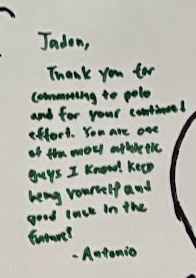 Jadon,
Thank you for
committing to polo
and for your continued
effort. You are one
of the most athletic
guys I know! Keep
being yourself and
good luck in the
future!
- Antonio